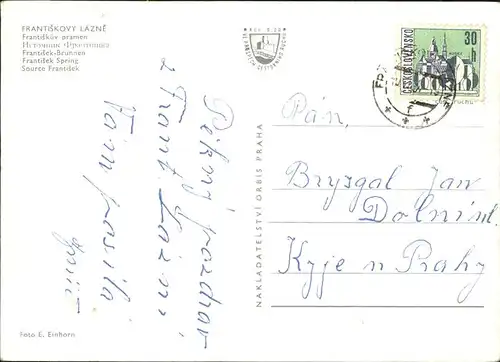 FRANTIŠKOVY LÁZNĚ
Františkův pramen
Источник Франтишка
František-Brunnen
František Spring
Source František
Pěkný pozdrav
z Frant. Lázní
Vám posílá
Foto E. Einhorn
NAKLADATELSTVÍ ORBIS PRAHA
ČESKOSLOVENSKO
30
h
Pán,
Bryzgal Jan
Dolní
Kyje u Prahy